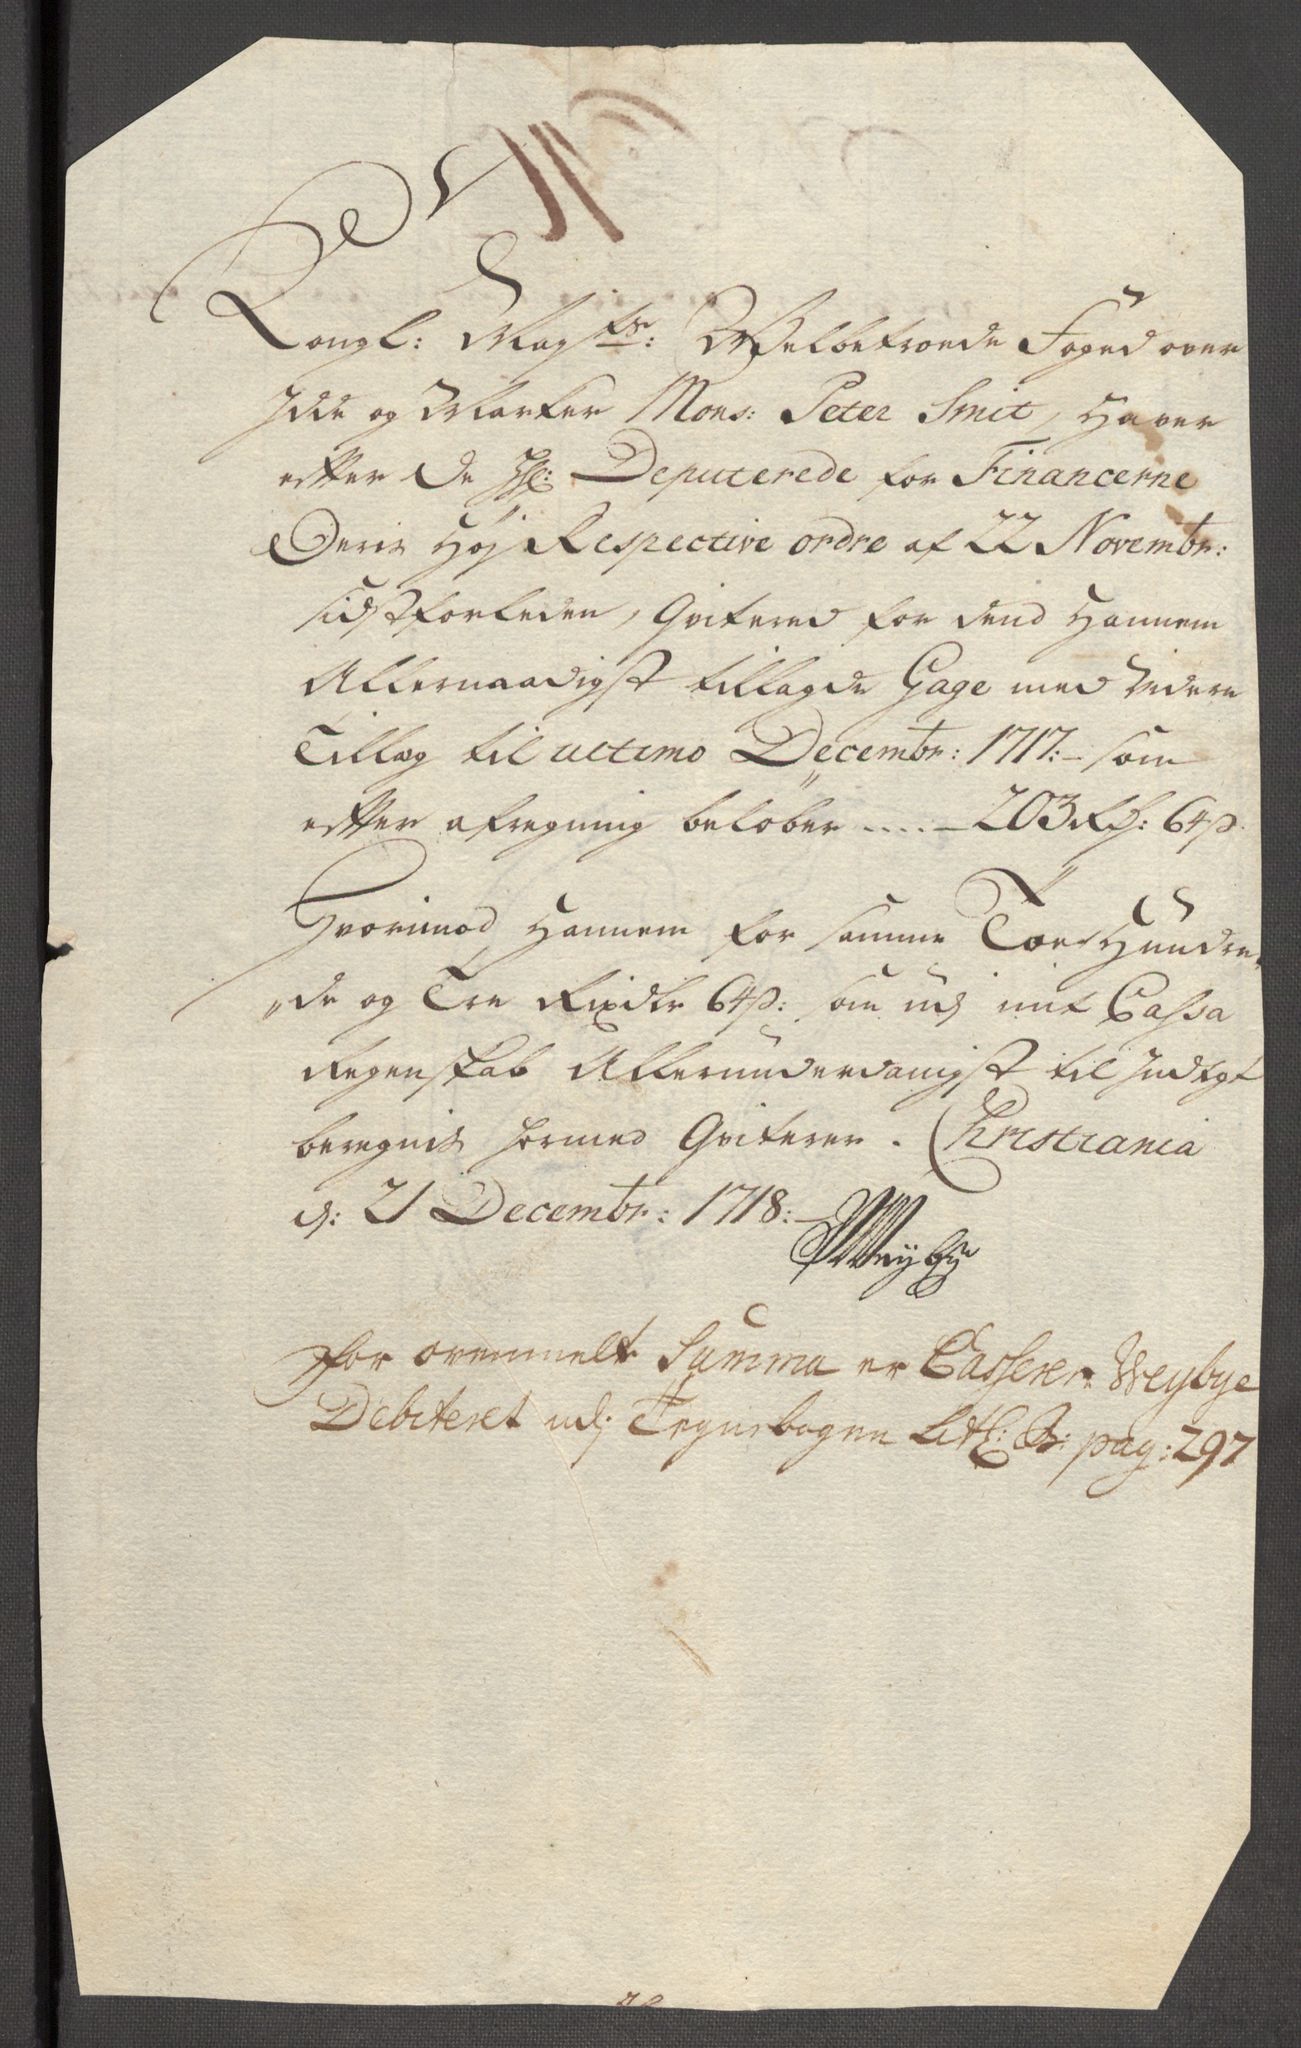 Kongl: Mayts: Welbetroede Foged over
Idde og Marker Mons: Peter Smit, Haver
efter De HH: Deputerede for Financerne
Deris Høj Respective ordre af 22 Novembr:
sidstforleden, Qvitered for dend Hannem
Allernaadigst tillagde Gage med videre
Tillæg til ultimo Decembr: 1717:- som
efter afregning beløber .... - 203 Rd: 64 s.
Hvorimod Hannem for samme Toe Hundre,,
,,de og Tre Rixdlr 64 s: som udj mit Cassa
Regenskab Allerunderdanigst til Indtgt
beregnis hermed Qviterer. Christiania
d: 21 Decembr: 1718:-
Weybye
For ovenmelte Summa er Casserer Weybye
Debiteret udj Tegnebogen Litt: B: pag: 297